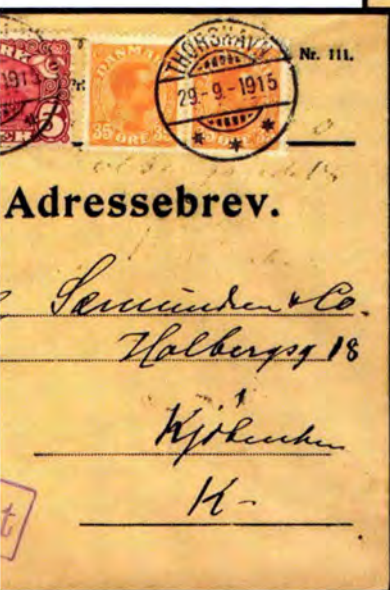 ØRE
1915
DANMARK
35 ØRE 35
THORSHAVN
29.-9.-1915
Nr. 111.
Adressebrev.
Sæmundsen & Co.
Holbergsg 18
Kjøbenhn
K-